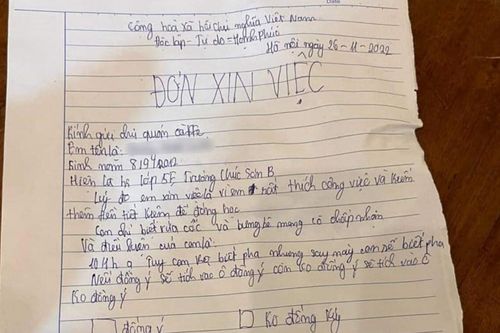 Date
Cộng hoà xã hội chủ nghĩa Việt Nam
Độc lập - Tự do - Hạnh Phúc
Hà nội ngày 26-11-2022
ĐƠN XIN VIỆC
Kính gửi chủ quán cà
Em tên là:
Sinh năm 8
Hiện là hs lớp 5E Trường Chúc Sơn B
Lý do em xin việc là vì em rất thích công việc và kiếm
thêm tiền tiết kiệm để đóng học
Con chỉ biết rửa cốc và bưng bê mong cô chấp nhận
Và điều kiện của con là:
Tuy con ko biết pha nhưng say này con sẽ biết pha
Nếu đồng ý sẽ tích vào ô đồng ý còn ko đồng ý sẽ tích vào ô
Ko đồng ý
đồng ý
Ko đồng